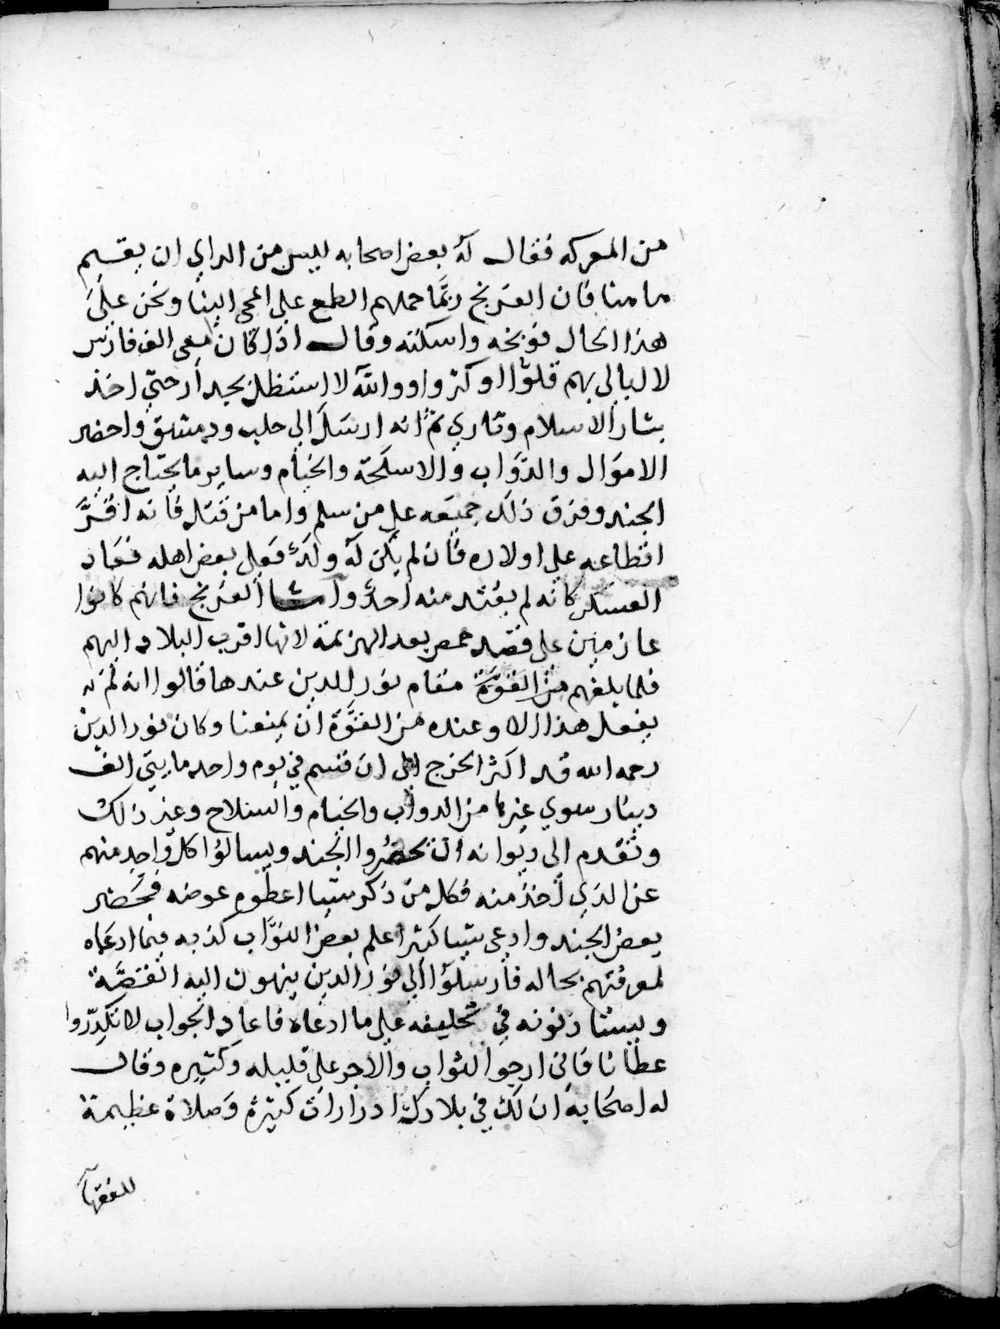 من المعركه فقال له بعض اصحابه ليس من الراي ان يقيم
هاهنا فان الفرنج ربما حملهم الطمع على المجى الينا ونحن على
هذا الحال فوبخه واسكته وقال اذا كان معى الف فارس
لا ابالى بهم قلوا او كثروا ووالله لا استظل بجدار حتى اخذ
بثار الاسلام وثارى ثم انه ارسل الى حلب ودمشق واحضر
الاموال والدواب والاسلحة والخيام وساير مايحتاج اليه
الجند وفرق ذلك جميعه على من سلم واما من قتل فانه اقر
اقطاعه على اولاده فان لم يكن له ولد فعلى بعض اهله فعاد
العسكر كانه لم يفقد منه احد واما الفرنج فانهم كانوا
عازمين على قصد حمص بعد الهزيمة لانها اقرب البلاد اليهم
فلما بلغهم مقام نور الدين عندها قالوا انه لم
يفعل هذا الا وعنده من القوة ان يمنعنا وكان نور الدين
رحمه الله قد اكثر الخرج الى ان قسم في يوم واحد مايتى الف
دينار سوى غيرها من الدواب والخيام والسلاح وغير ذلك
وتقدم الى ديوانه ان يحضروا الجند ويسالوا كل واحد منهم
عن الذى اخذ منه فكل من ذكر شيا اعطوه عوضه فحضر
بعض الجند وادعى شيا كثيرا علم بعض النواب كذبه فيما ادعاه
لمعرفتهم بحاله فارسلوا الى نور الدين ينهون اليه القصة
ويستاذنونه في تحليفه على ما ادعاه فاعاد الجواب لا تكدروا
عطانا فانى ارجوا الثواب والاجر على قليله وكثيره وقال
له اصحابه ان لك في بلادك ادرارات كثيرة وصلاة عظيمة
للفقهآ